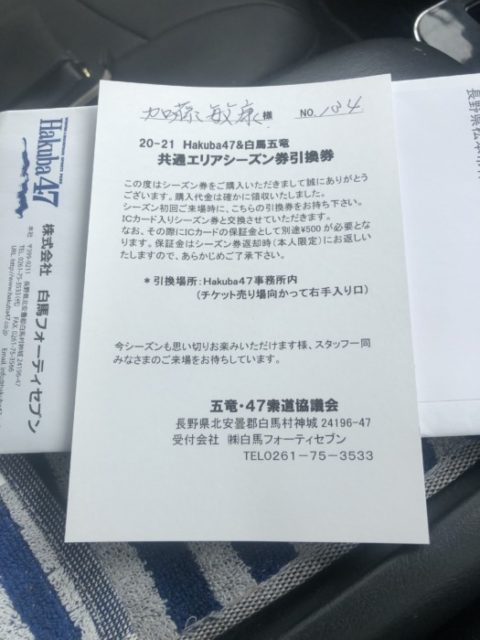 加藤敏康 様 NO. 184
20-21 Hakuba47&白馬五竜
共通エリアシーズン券引換券
この度はシーズン券をご購入いただきまして誠にありがとう
ございます。購入代金は確かに領収いたしました。
シーズン初回ご来場時に、こちらの引換券をお持ち下さい。
ICカード入りシーズン券と交換させていただきます。
なお、その際にICカードの保証金として別途¥500が必要となり
ます。保証金はシーズン券返却時(本人限定)にお返しい
たしますので、あらかじめご了承下さい。
*引換場所:Hakuba47事務所内
(チケット売り場向かって右手入り口)
今シーズンも思い切りお楽みいただけます様、スタッフ一同
みなさまのご来場をお待ちしています。
五竜・47索道協議会
長野県北安曇郡白馬村神城24196-47
受付会社 ㈱白馬フォーティセブン
TEL0261-75-3533
Hakuba47
株式会社 白馬フォーティセブン
本社 〒399-9211 長野県北安曇郡白馬村神城24196-47